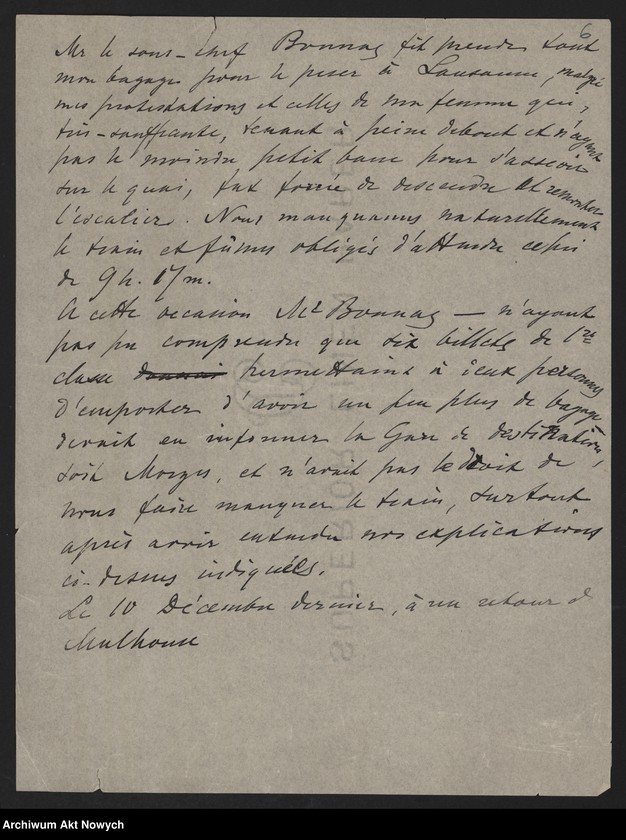 6
Mr le sous-chef Bonnaz fit prendre tout
mon bagage pour le peser à Lausanne, malgré
mes protestations et celles de ma femme qui,
très-souffrante, tenant à peine debout et n'ayant
pas le moindre petit banc pour s'asseoir
sur le quai, fut forcée de descendre et remonter
l'escalier. Nous manquames naturellement
le train et fûmes obligés d'attendre celui
de 9 h. 17 m.
A cette occasion Mr Bonnaz — n'ayant
pas pu comprendre que dix billets de 1re
classe donnai permettaient à deux personnes
d'emporter d'avoir un peu plus de bagage
devait en informer la Gare de destination,
soit Morges, et n'avait pas le droit de
nous faire manquer le train, surtout
après avoir entendu nos explications
ci-dessus indiquées.
Le 10 Décembre dernier, à un retour de
Mulhouse
SUPERIOR
Archiwum Akt Nowych